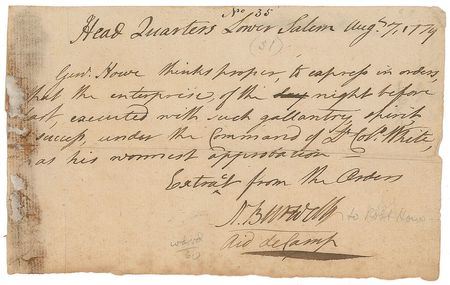 No 35
Head Quarters Lower Salem Augt 7, 1779
(51)
Genl. Howe thinks proper, to express in orders
that the enterprise, of the day night before
ast, executed with such gallantry, spirit
success, under the Command of Lt. Col. White,
as his warmest approbation
Extract from the Orders
N.
to Robt Howe
Aid de Camp